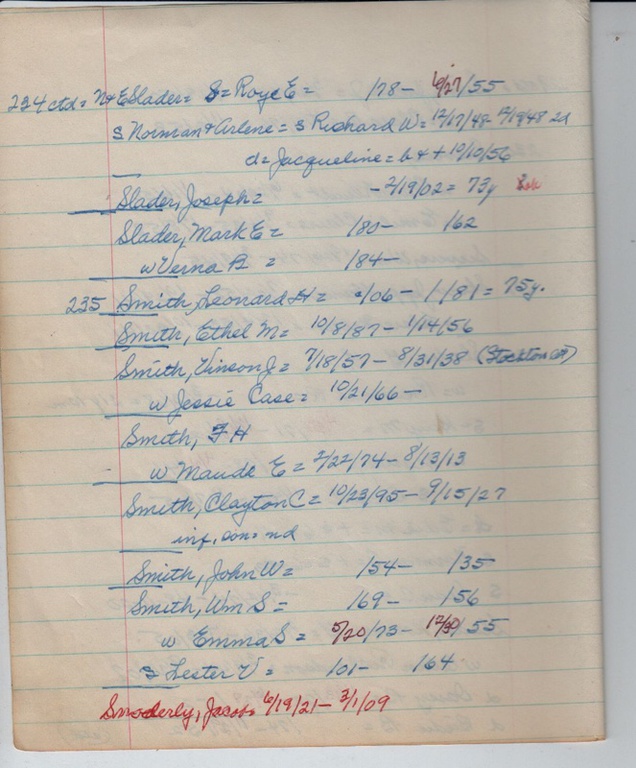 234 ctd = N+E Slader = S = Royce E = /78 - 6/27/55
S Norman + Arlene = S Richard W = 12/17/48 - 12/19/48 2d
d = Jacqueline = b + + 10/10/56
Slader, Joseph = - 2/19/02 = 73y
Slader, Mark E = /80 - /62
w Verna A = /84 -
235 Smith, Leonard H = /06 - 1/81 = 75y.
Smith, Ethel M = 10/8/87 - 1/14/56
Smith, Vinson J = 7/18/57 - 8/31/38 (Stockton)
w Jessie Case = 10/21/66 -
Smith, F H
w Maude E = 2/22/74 - 8/13/13
Smith, Clayton C = 10/23/95 - 9/15/27
inf, son = nd
Smith, John W = /54 - /35
Smith, Wm S = /69 - /56
w Emma S = 5/20/73 - /55
S Lester V = /01 - /64
Jacob = 6/19/21 - 3/1/09